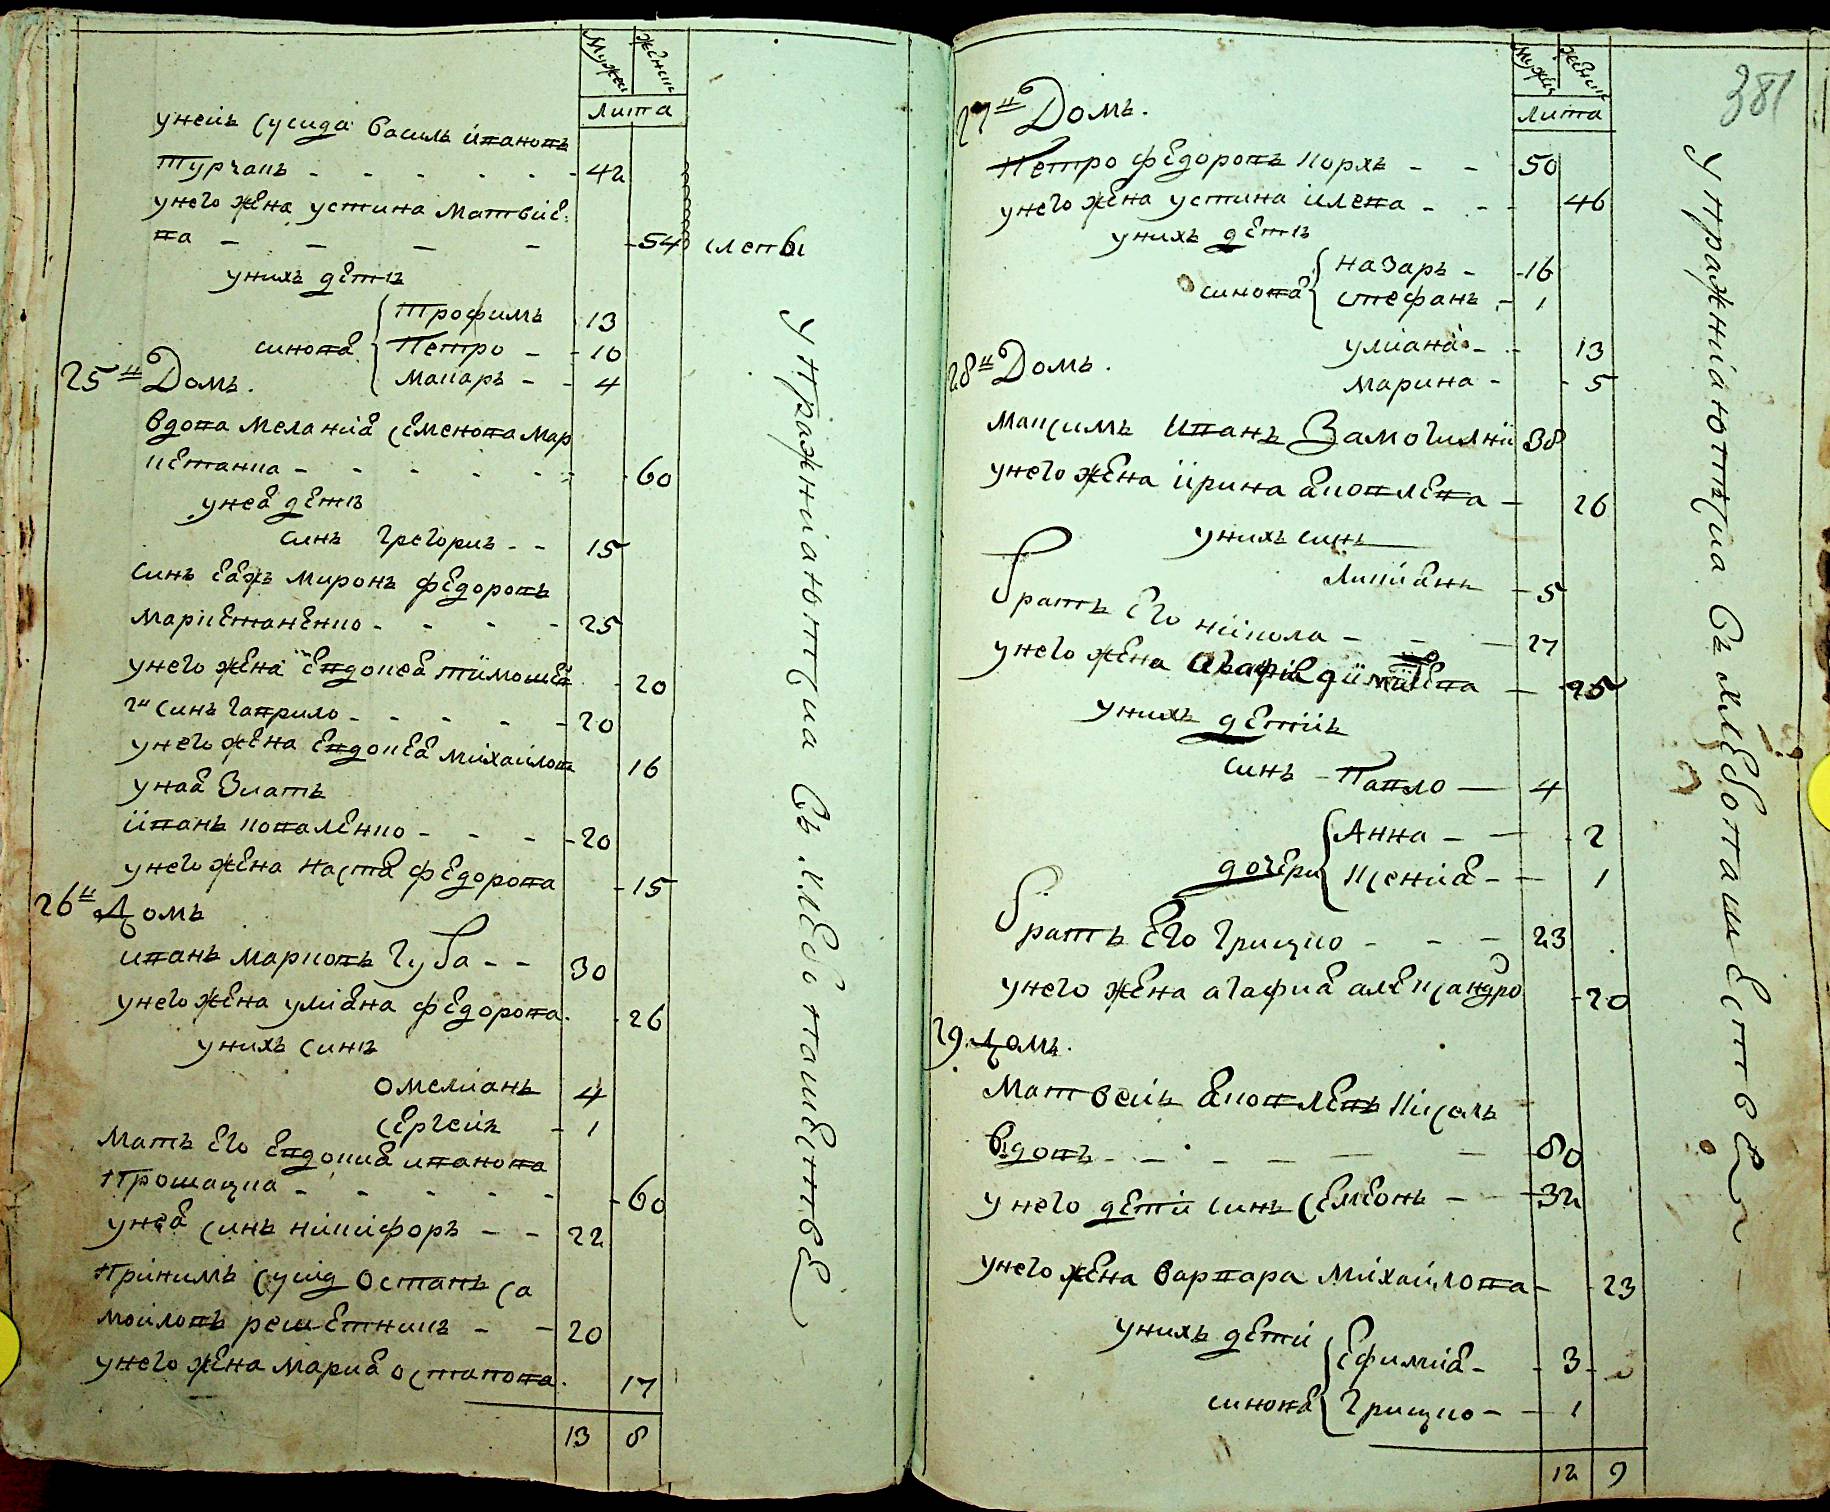 Мужеи Женши
Лита
унеиъ сусида василь ивановъ
Турчанъ - - - - - - 42
унего жена устина матвие
ва - - - - 54 слепы
унихъ дети
Трофимъ 13
синове Петро - - 10
макаръ - - 4
25 й Домъ.
вдова мелания семенова мар
кетанка - - - - - 60
унея дети
синъ григорий - - 15
синъ еяжъ миронъ федоровъ
маркетаненко - - - - 25
унего жена евдокея тимоше 20
2й синъ гаврило - - - - - 20
унего жена евдокея михаилова 16
уная зять
иванъ коваленко - - - - 20
унего жена настя федорова - 15
26 й Домъ
иванъ марковъ губа - - 30
унего жена улияна федорова. 26
унихъ синъ
омелианъ 4
сергеий - 1
мать его евдокия иванова
прошацка - - - - - 60
унея синъ никифоръ - - 22
принимъ сусид остапъ са
моиловъ решетникъ - - 20
унего жена мария остапова. 17
13 8
упражниаютсиа въ хлебопашентве
Мужеи Женши
Лита
381
27 й Домъ.
Петро федоровъ коржъ - - 50
унего жена устина илева - - - 46
унихъ дети
назаръ - 16
синове стефанъ - 1
улиана - - 13
марина - - 5
28 й Домъ.
максимъ иванъ Замогилний 38
унего жена ирина яковлева - 26
унихъ синъ
лукиянъ - 5
братъ его никола - - - 27
унего жена - 25
унихъ детий
синъ - Павло - 4
Анна - - 2
дочери ксения - - 1
братъ его грицко - - - 23
унего жена агафия александро - 20
29. домъ.
матвеий яковлевъ кисель
вдовъ - - - - - - 80
унего дети синъ семеонъ - - 32
унего жена варвара михаилова - - 23
унихъ дети
ефимия - - 3 -
синове грицко - - 1
12 9
упражниаютсиа въ хлебопашестве